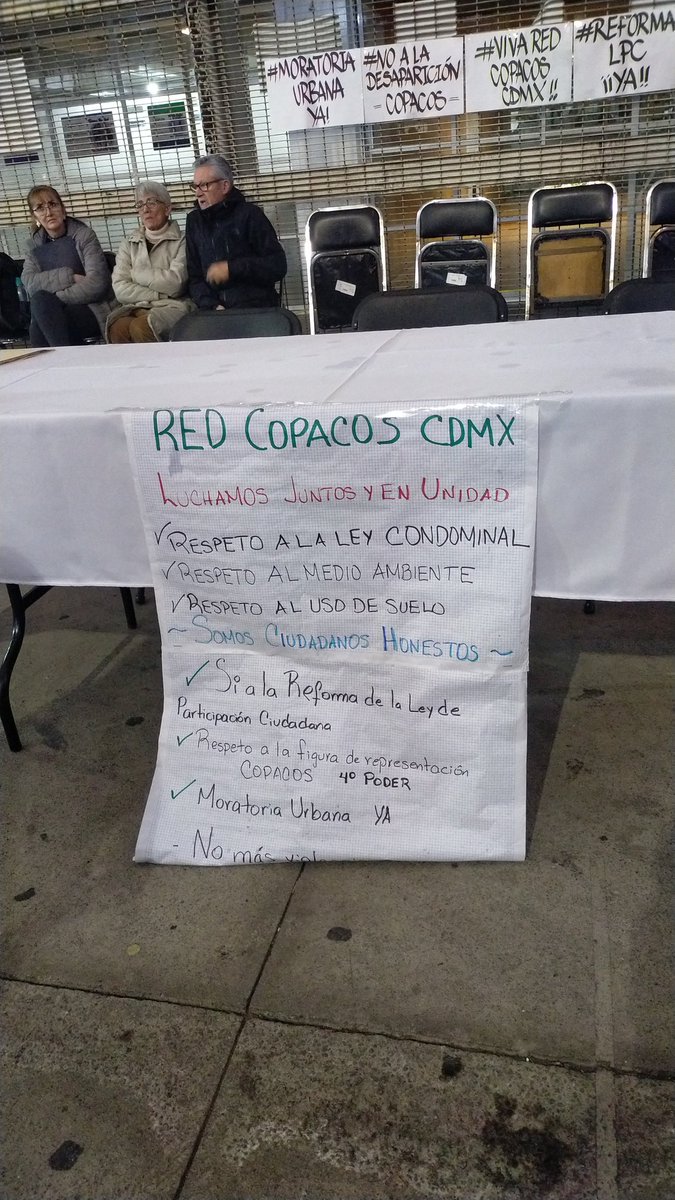 #MORATORIA
URBANA
YA!
#NO A LA
DESAPARICIÓN
-COPACOS-
#VIVA RED
COPACOS
CDMX!!
#REFORMA
LPC
¡¡YA!!
RED COPACOS CDMX
LUCHAMOS JUNTOS Y EN UNIDAD
✓RESPETO A LA LEY CONDOMINAL
✓RESPETO AL MEDIO AMBIENTE
✓RESPETO AL USO DE SUELO
~SOMOS CIUDADANOS HONESTOS~
✓Si a la Reforma de la Ley de
Participación Ciudadana
✓Respeto a la figura de representación
COPACOS 4º PODER
✓Moratoria Urbana YA
- No más